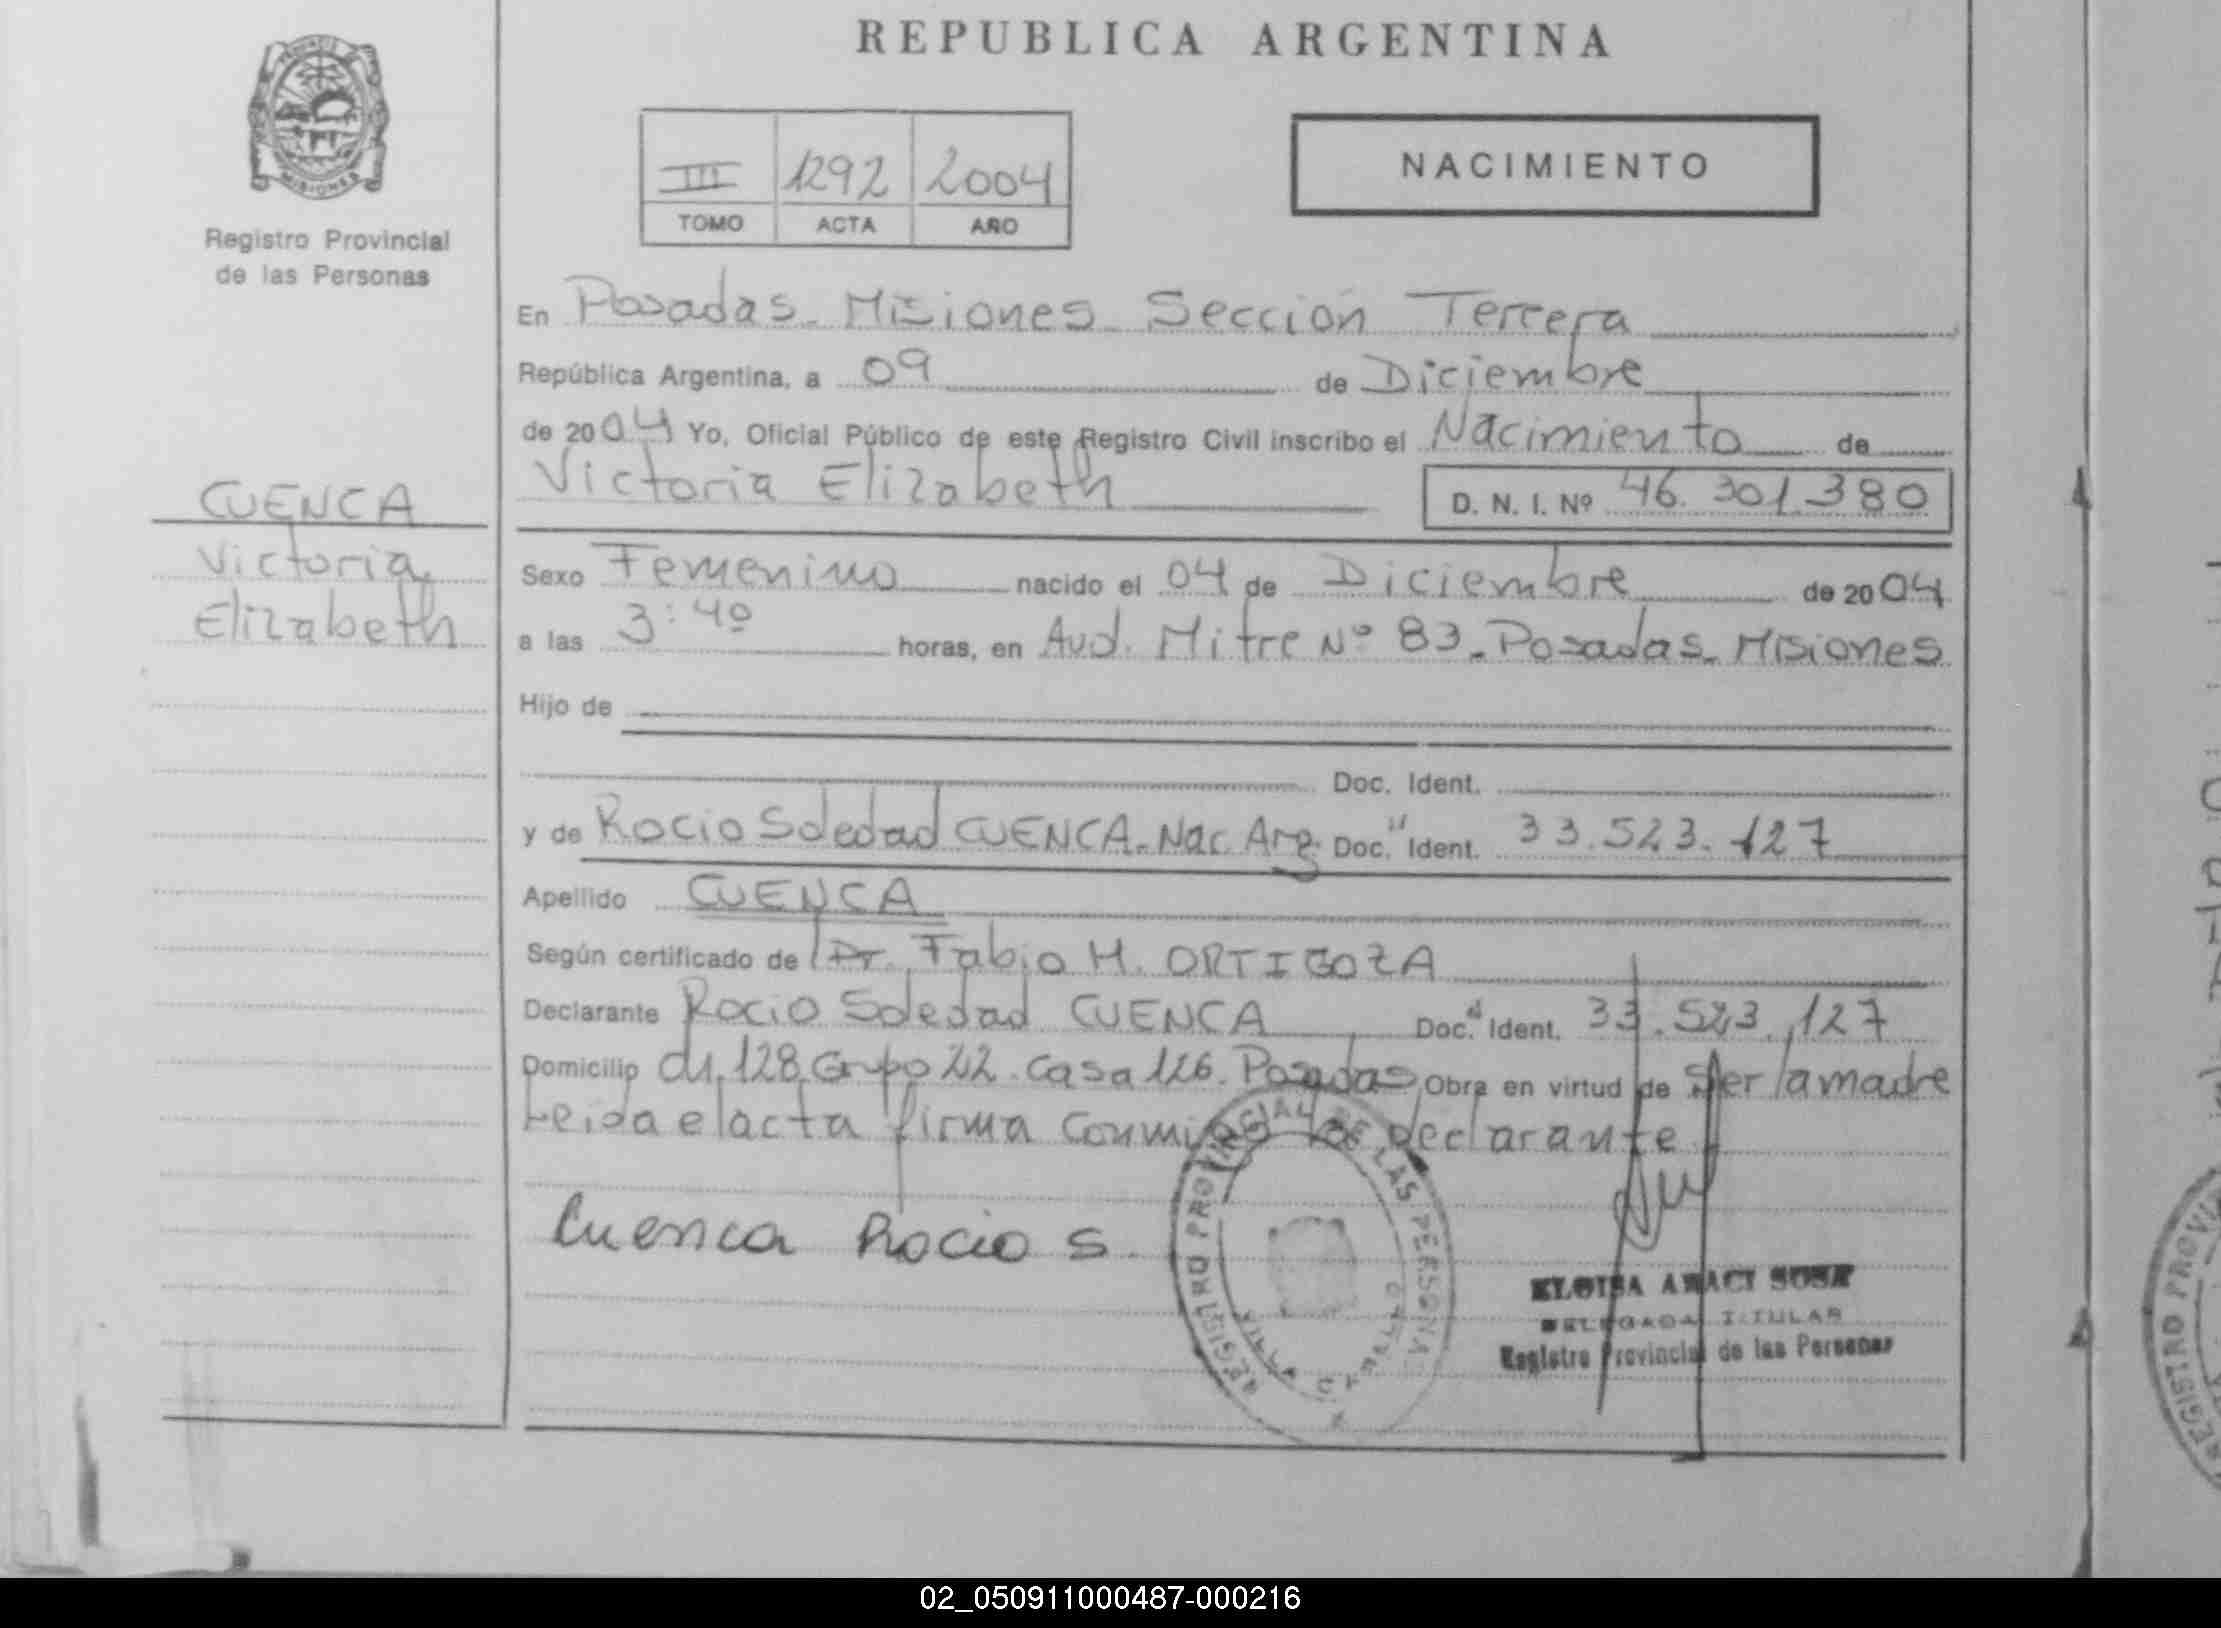 REPUBLICA ARGENTINA
MISIONES
Registro Provincial
de las Personas
III 1292 2004
TOMO ACTA AÑO
NACIMIENTO
En Posadas - Misiones - Sección Tercera
República Argentina, a 09 de Diciembre
de 2004 Yo, Oficial Público de este Registro Civil inscribo el Nacimiento de
Victoria Elizabeth D. N. I. Nº 46.301.380
CUENCA
Victoria
Elizabeth
Sexo Femenino nacido el 04 de Diciembre de 2004
a las 3:40 horas, en Avd. Mitre Nº 83 - Posadas - Misiones
Hijo de
Doc. Ident.
y de Rocio Soledad CUENCA - Nac. Arg. Doc. Ident. 33.523.127
Apellido CUENCA
Según certificado de Dr. Fabio H. ORTIGOZA
Declarante Rocio Soledad CUENCA Doc. Ident. 33.523.127
Domicilio 128 Grupo 22 Casa 126 Posadas Obra en virtud de Ser la madre
Leida el acta firma conmigo la declarante
Cuenca Rocio S.
REGISTRO PROVINCIAL DE LAS PERSONAS
ELOISA ARACI SOSA
DELEGADA TITULAR
Registro Provincial de las Personas
REGISTRO PROVI
02_050911000487-000216